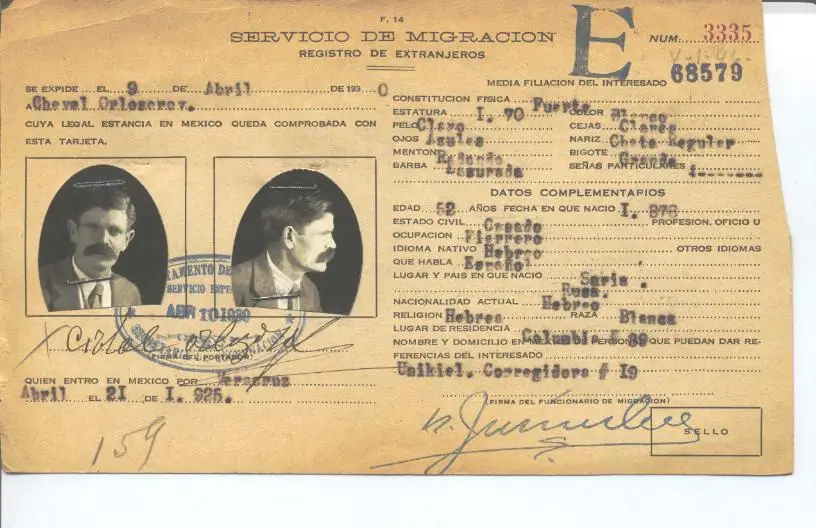 F. 14
SERVICIO DE MIGRACION
REGISTRO DE EXTRANJEROS
E
NUM. 3335
68579
SE EXPIDE EL 9 DE Abril DE 1930
A Cheval Orlosorov.
CUYA LEGAL ESTANCIA EN MEXICO QUEDA COMPROBADA CON
ESTA TARJETA.
ABR 10 1930
(FIRMA DEL PORTADOR)
QUIEN ENTRO EN MEXICO POR Veracruz
Abril EL 21 DE I. 925.
159
MEDIA FILIACION DEL INTERESADO
CONSTITUCION FISICA Fuerte
ESTATURA I. 70 COLOR Blanco
PELO Claro CEJAS Claras
OJOS Azules NARIZ Chata Regular
MENTON Redondo BIGOTE Grande
BARBA Rasurada SEÑAS PARTICULARES
DATOS COMPLEMENTARIOS
EDAD 52 AÑOS FECHA EN QUE NACIO I. 878
ESTADO CIVIL Casado PROFESION, OFICIO U
OCUPACION Fierrero
IDIOMA NATIVO Hebreo OTROS IDIOMAS
QUE HABLA Español
LUGAR Y PAIS EN QUE NACIO Saria.
Rusa.
NACIONALIDAD ACTUAL Hebreo
RELIGION Hebrea RAZA Blanca
LUGAR DE RESIDENCIA Columbia # 39
NOMBRE Y DOMICILIO EN MEXICO DE PERSONAS QUE PUEDAN DAR RE-
FERENCIAS DEL INTERESADO
Unikiel. Corregidora # 19
(FIRMA DEL FUNCIONARIO DE MIGRACION)
SELLO